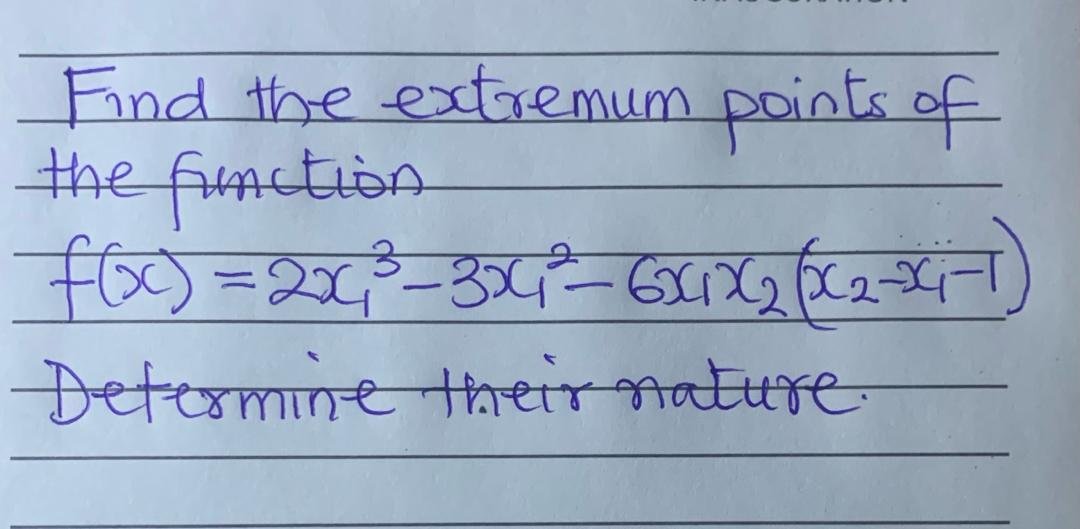 Find the extremum points of
the function
f(x) = 2x₁³ - 3x₁² - 6x₁x₂(x₂-x₁-1)
Determine their nature.